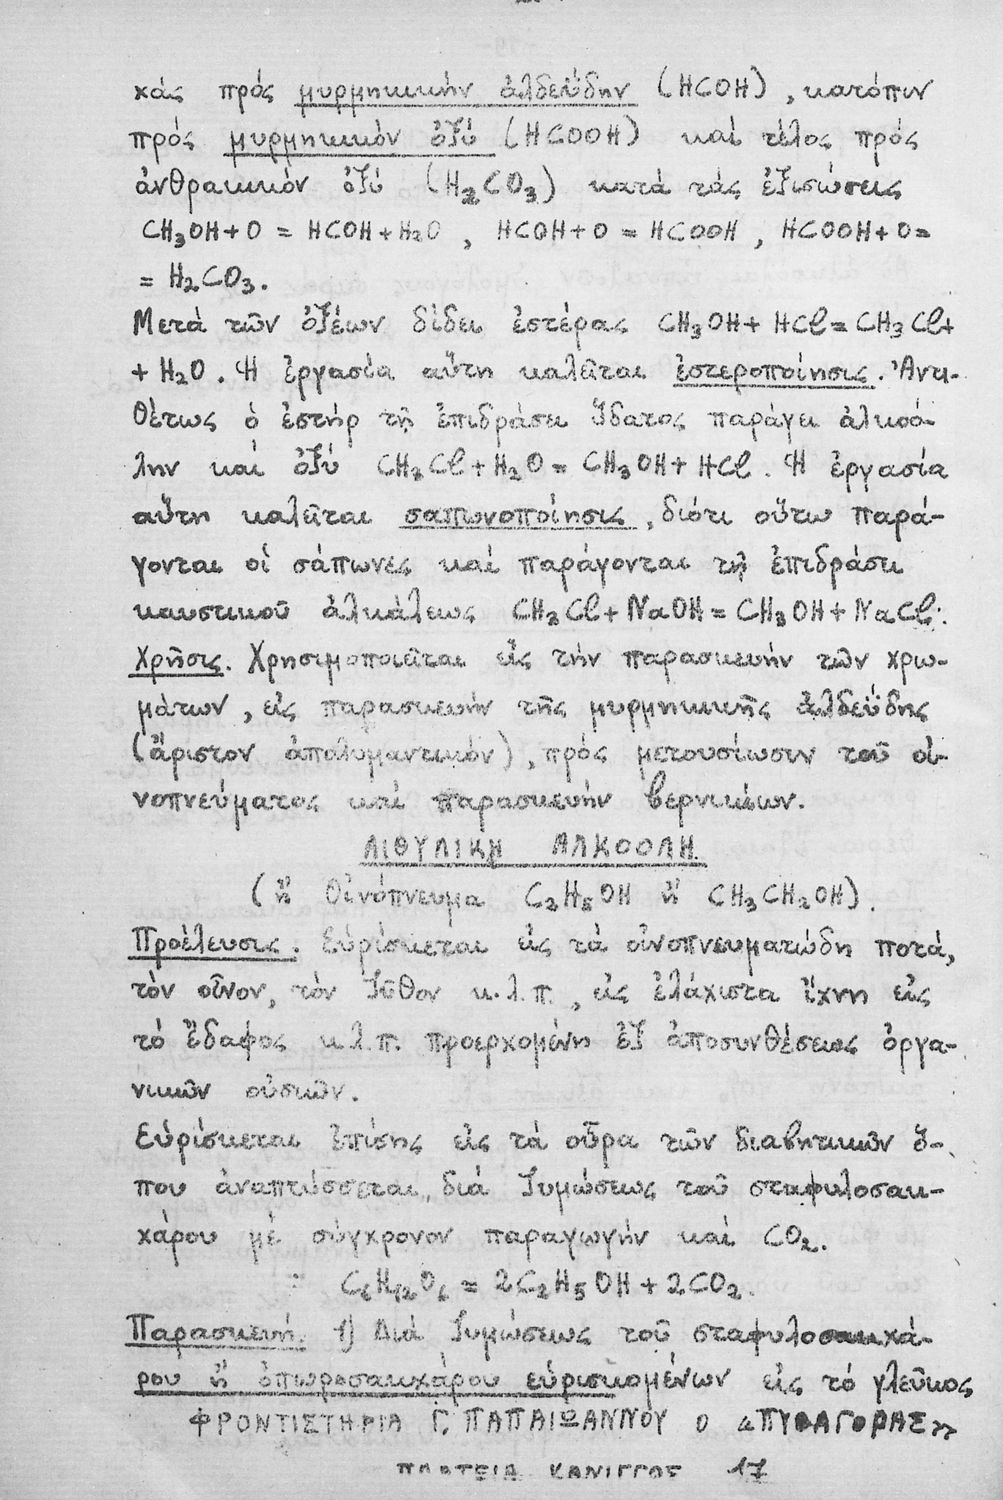 κάς πρός μυρμηκικήν ἀλδεύδην (HCOH), κατόπιν
πρός μυρμηκικόν ὀξύ (HCOOH) καί τέλος πρός
ἀνθρακικόν ὀξύ (H₂CO₃) κατά τάς ἐξισώσεις
CH₃OH + O = HCOH + H₂O , HCOH + O = HCOOH , HCOOH + O =
= H₂CO₃.
Μετά τῶν ὀξέων δίδει ἐστέρας CH₃OH + HCl = CH₃Cl +
+ H₂O. Ἡ ἐργασία αὕτη καλεῖται ἐστεροποίησις. Ἀντι-
θέτως ὁ ἐστήρ τῇ ἐπιδράσει ὕδατος παράγει ἀλκοό-
λην καί ὀξύ CH₃Cl + H₂O = CH₃OH + HCl. Ἡ ἐργασία
αὕτη καλεῖται σαπωνοποίησις, διότι οὕτω παρά-
γονται οἱ σάπωνες καί παράγονται τῇ ἐπιδράσει
καυστικοῦ ἀλκάλεως CH₃Cl + NaOH = CH₃OH + NaCl.
Χρῆσις. Χρησιμοποιεῖται εἰς τήν παρασκευήν τῶν χρω-
μάτων, εἰς παρασκευήν τῆς μυρμηκικῆς ἀλδεΰδης
(ἄριστον ἀπολυμαντικόν), πρός μετουσίωσιν τοῦ οἰ-
νοπνεύματος καί παρασκευήν βερνικίων.
ΑΙΘΥΛΙΚΗ ΑΛΚΟΟΛΗ
(ἤ Οἰνόπνευμα C₂H₅OH ἤ CH₃CH₂OH).
Προέλευσις. Εὑρίσκεται εἰς τά οἰνοπνευματώδη ποτά,
τόν οἶνον, τόν ζῦθον κ.λ.π., εἰς ἐλάχιστα ἴχνη εἰς
τό ἔδαφος κ.λ.π. προερχομένη ἐξ ἀποσυνθέσεως ὀργα-
νικῶν οὐσιῶν.
Εὑρίσκεται ἐπίσης εἰς τά οὖρα τῶν διαβητικῶν ὅ-
που ἀναπτύσσεται, διά ζυμώσεως τοῦ σταφυλοσακ-
χάρου μέ σύγχρονον παραγωγήν καί CO₂.
C₆H₁₂O₆ = 2C₂H₅OH + 2CO₂.
Παρασκευή. 1) Διά ζυμώσεως τοῦ σταφυλοσακχά-
ρου ἤ ὀπωροσακχάρου εὑρισκομένων εἰς τό γλεῦκος
ΦΡΟΝΤΙΣΤΗΡΙΑ Γ. ΠΑΠΑΙΩΑΝΝΟΥ Ο «ΠΥΘΑΓΟΡΑΣ»
ΠΛΑΤΕΙΑ ΚΑΝΙΓΓΟΣ 17